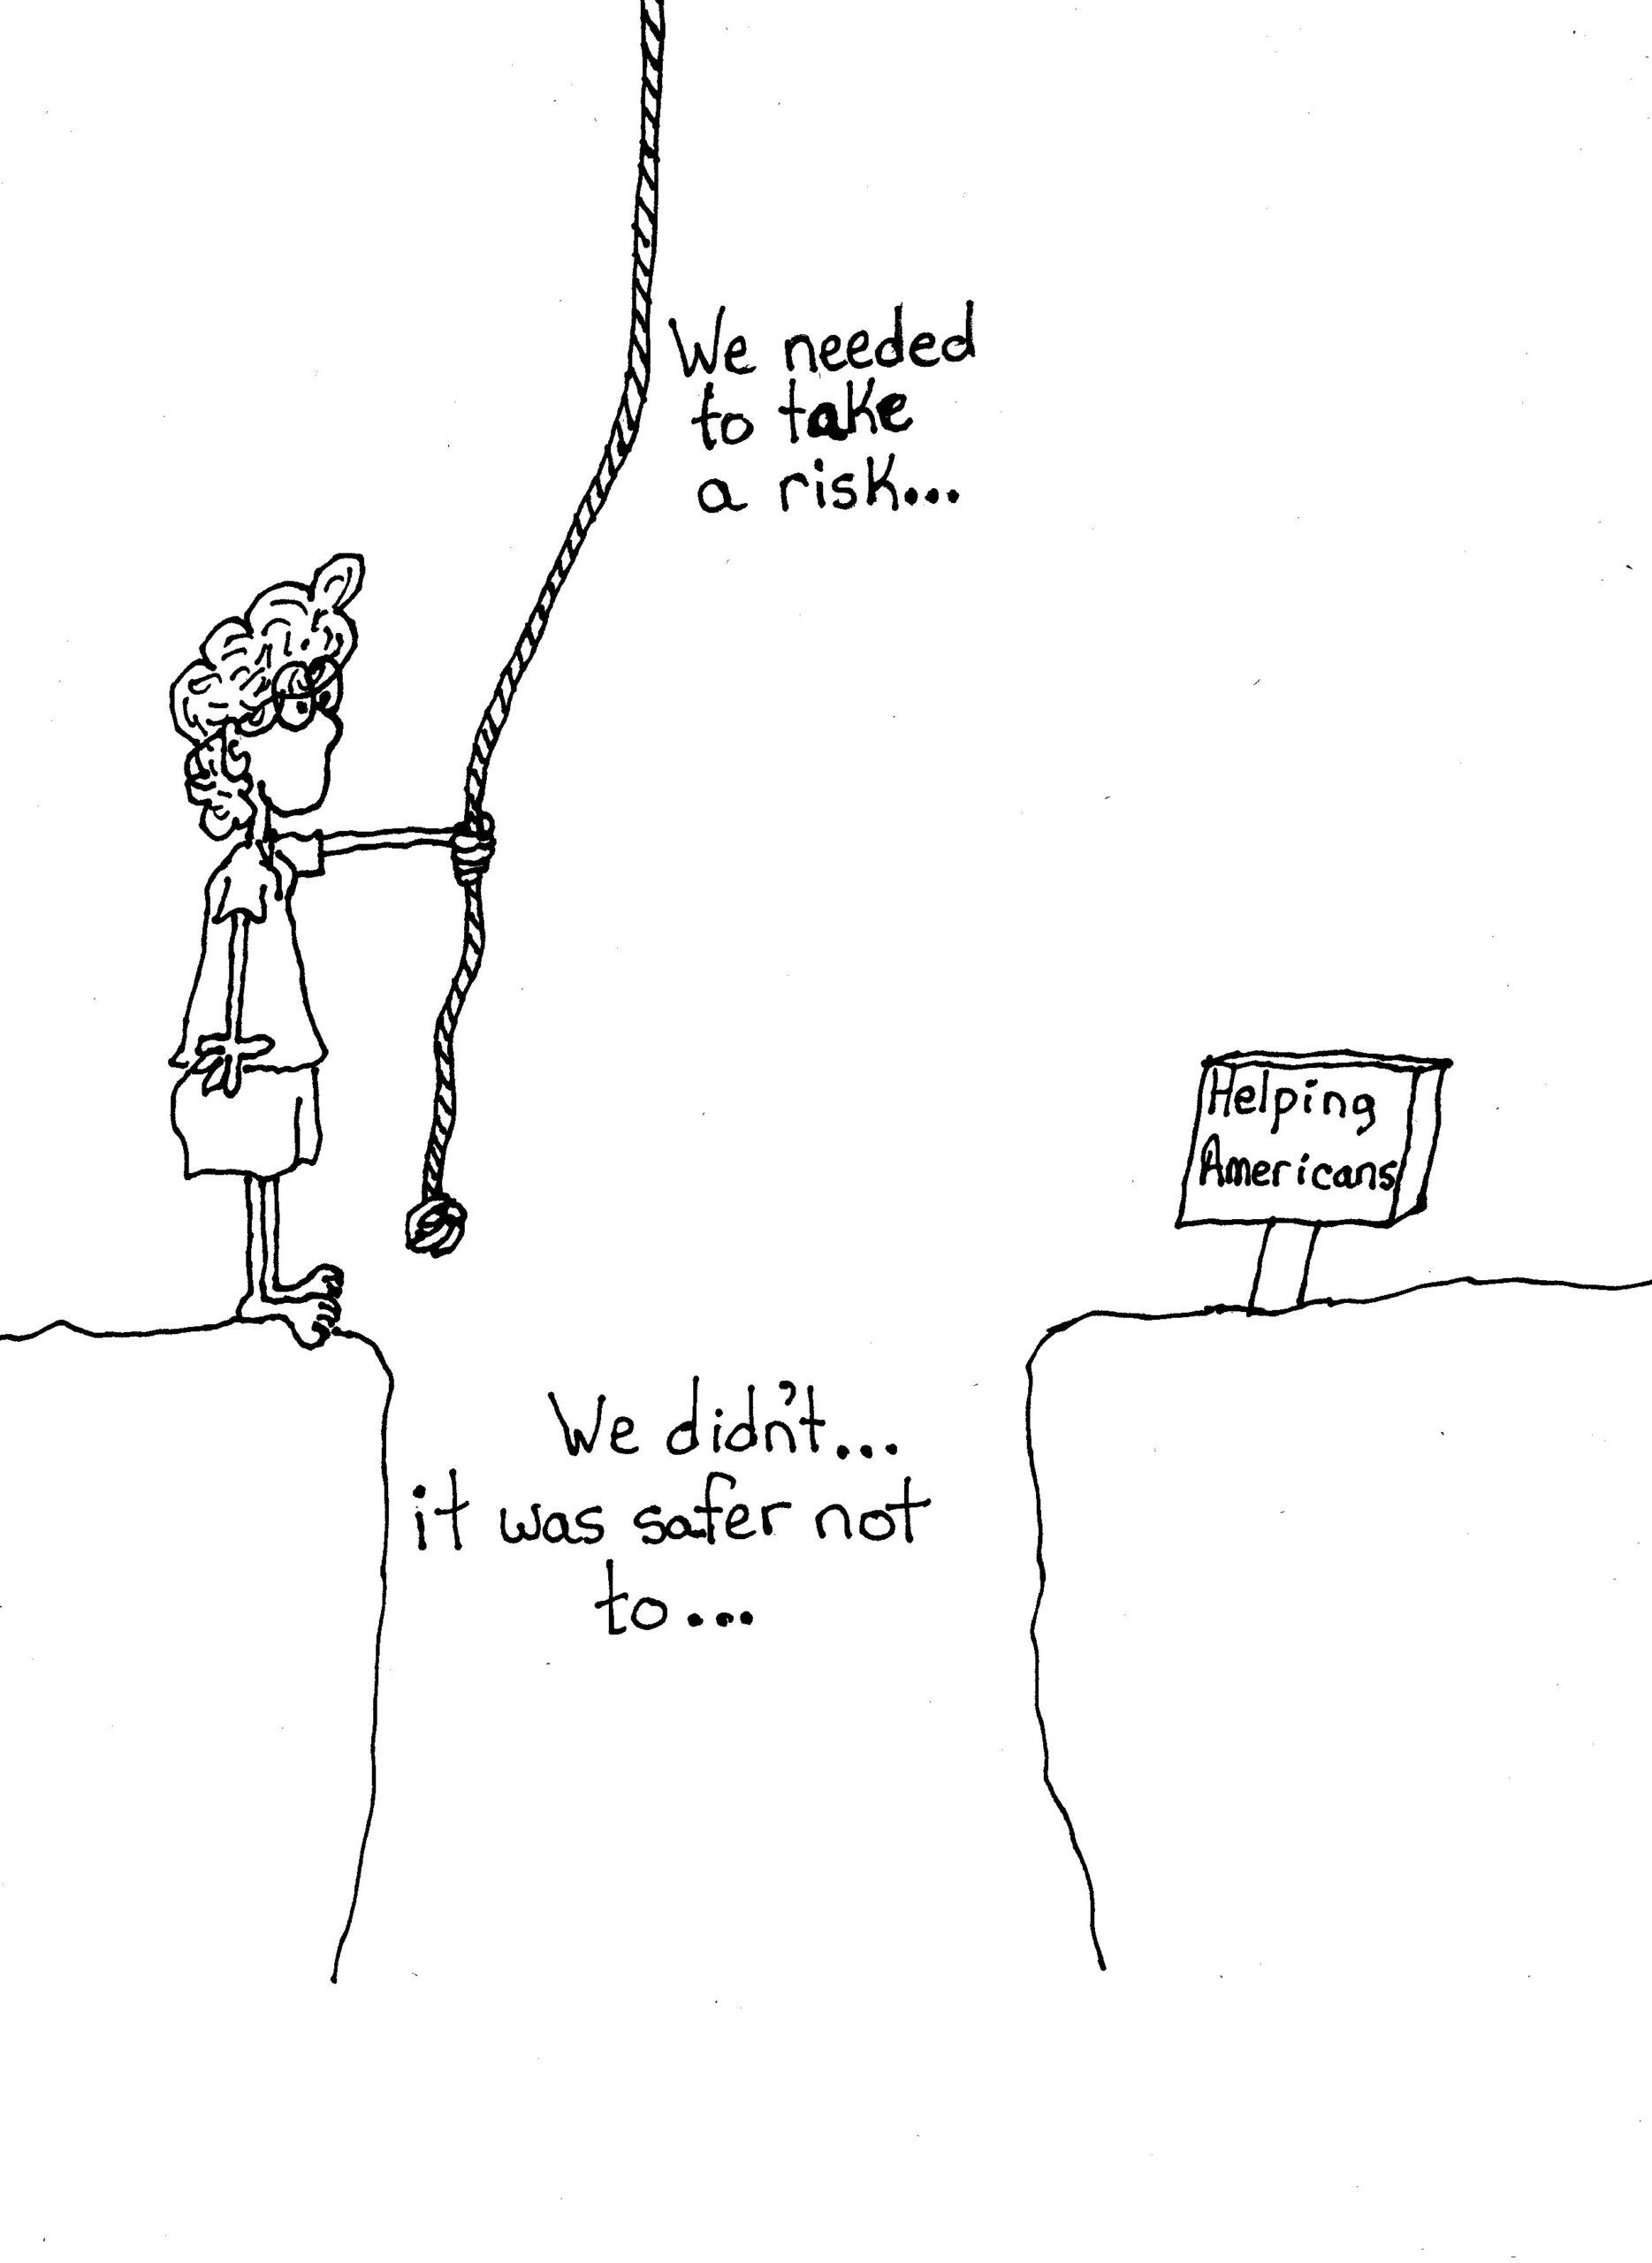 We needed
to take
a risk...
Helping
Americans
We didn't...
it was safer not
to...